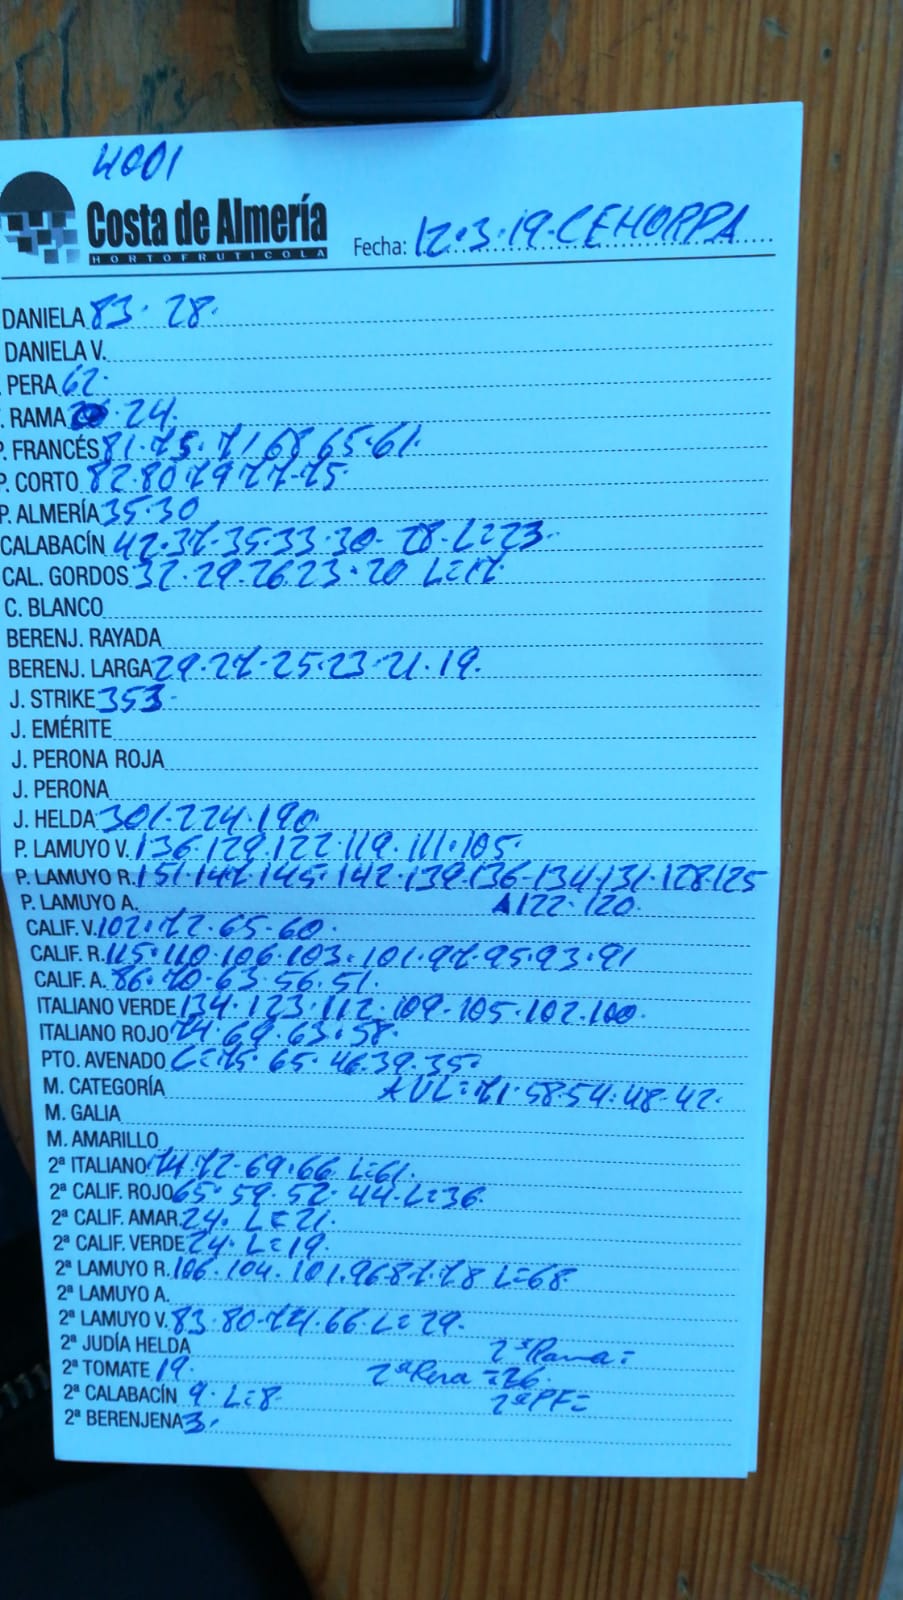 4001
Costa de Almería
HORTOFRUTICOLA
Fecha: 12.3.19. CEHORPA
DANIELA 83. 28.
DANIELA V.
PERA 62.
RAMA 24.
P. FRANCÉS 81. 75. 71. 68. 65. 61.
P. CORTO 82. 80. 79. 77. 75.
P. ALMERÍA 35. 30
CALABACÍN 42. 37. 35. 33. 30. 28. L=23.
CAL. GORDOS 32. 29. 26 23. 20 L=17.
C. BLANCO
BERENJ. RAYADA
BERENJ. LARGA 29. 27. 25. 23. 21. 19.
J. STRIKE 353.
J. EMÉRITE
J. PERONA ROJA
J. PERONA
J. HELDA 301. 224. 190.
P. LAMUYO V. 136. 129. 122. 119. 111. 105.
P. LAMUYO R. 151. 147. 145. 142. 139. 136. 134. 131. 128. 125
P. LAMUYO A. 122. 120.
CALIF. V. 102. 72. 65. 60.
CALIF. R. 115. 110. 106. 103. 101. 97. 95. 93. 91
CALIF. A. 86. 70. 63. 56. 51.
ITALIANO VERDE 134. 123. 112. 109. 105. 102. 100.
ITALIANO ROJO 74. 69. 63. 58.
PTO. AVENADO C=75. 65. 46. 39. 35.
M. CATEGORÍA AVL=71. 58. 54. 48. 42.
M. GALIA
M. AMARILLO
2ª ITALIANO 74. 72. 69. 66. L=61.
2ª CALIF. ROJO 65. 59. 52. 44. L=36.
2ª CALIF. AMAR. 24. L=21.
2ª CALIF. VERDE 24. L=19.
2ª LAMUYO R. 106. 104. 101. 96. 87. 78 L=68.
2ª LAMUYO A.
2ª LAMUYO V. 83. 80. 74. 66. L=29.
2ª JUDÍA HELDA 2ª Rama=
2ª TOMATE 19. 2ª Pera=26.
2ª CALABACÍN 9. L=8. 2ª PF=
2ª BERENJENA 3.